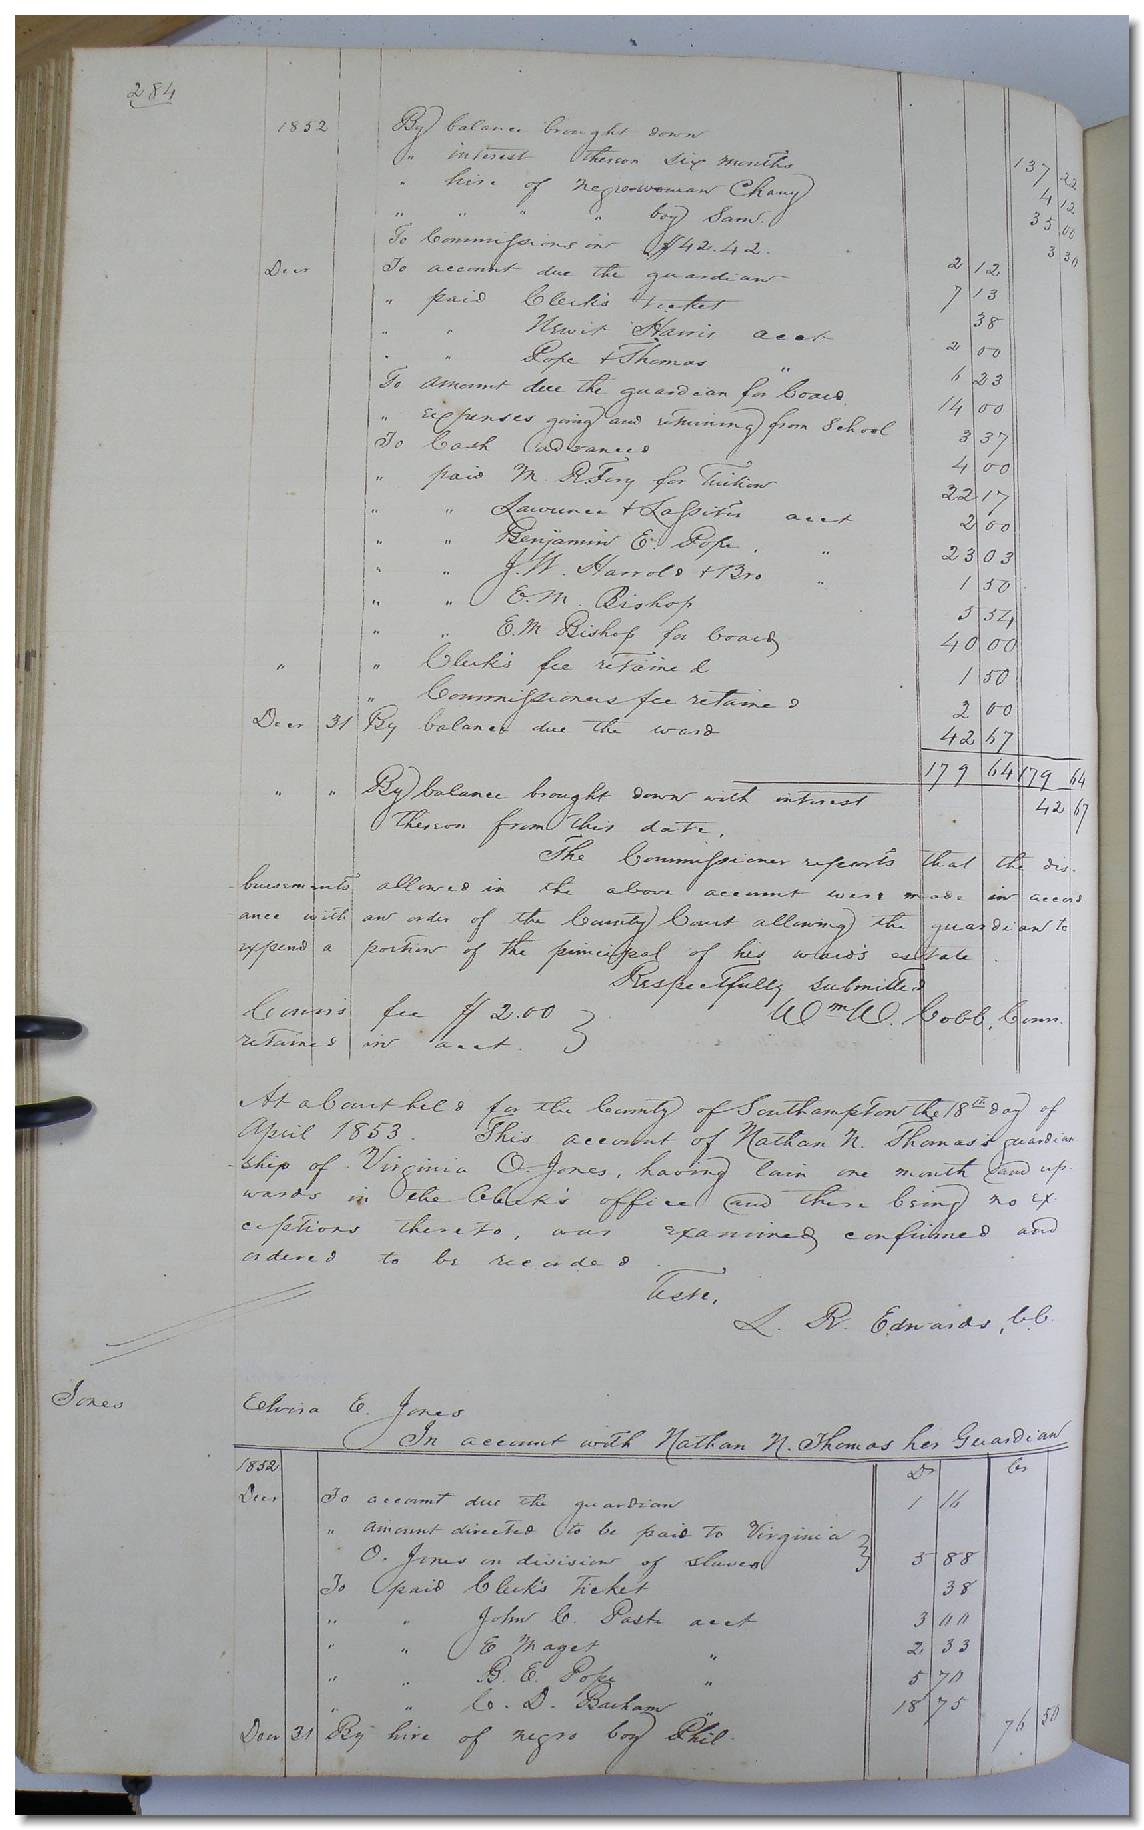 284
1852 By balance brought down 137 22
" interest thereon six months 4 12
" hire of negro woman Chany 35 00
" " " " boy Sam. 3 30
To Commissions on $42.42. 2 12
Decr To account due the guardian 7 13
" paid Clerk's ticket 38
" " Newit Harris acct 2 00
" " Pope & Thomas " 6 23
To amount due the guardian for board 14 00
" expenses going and returning from School 3 37
To Cash advanced 4 00
" paid M. R. for Tuition 22 17
" " Lawrence & Lassiter acct 2 00
" " Benjamin E. Pope. " 23 03
" " J. W. Harrold & Bro " 1 50
" " E. M. Bishop 5 54
" " E. M Bishop for board 40 00
" " Clerk's fee retained 1 50
" Commissioners fee retained 2 00
Decr 31 By balance due the ward 42 67
179 64 179 64
" " By balance brought down with interest 42 67
thereon from this date.
The Commissioner reports that the dis-
bursements allowed in the above account were made in accord
ance with an order of the County Court allowing the guardian to
expend a portion of the principal of his ward's estate.
Respectfully submitted
Comrs fee $2.00 } Wm W. Cobb, Comr.
retained in acct.
At a Court held for the County of Southampton the 18th day of
April 1853. This account of Nathan N. Thomas's guardian
ship of Virginia O. Jones, having lain one month and up-
wards in the Clerk's office and there being no ex-
ceptions thereto, was examined confirmed and
ordered to be recorded.
Teste,
L. R. Edwards, CC.
Jones
Elvira E. Jones
In account with Nathan N. Thomas her Guardian
1852 Dr Cr
Decr To account due the guardian 1 16
" amount directed to be paid to Virginia }
O. Jones on division of slaves } 5 88
To paid Clerk's Ticket 38
" " John C. acct 3 00
" " E Maget " 2 33
" " B. E. Pope " 5 70
" " C. D. Barham " 18 75
Decr 31 By hire of negro boy Phil. 76 50